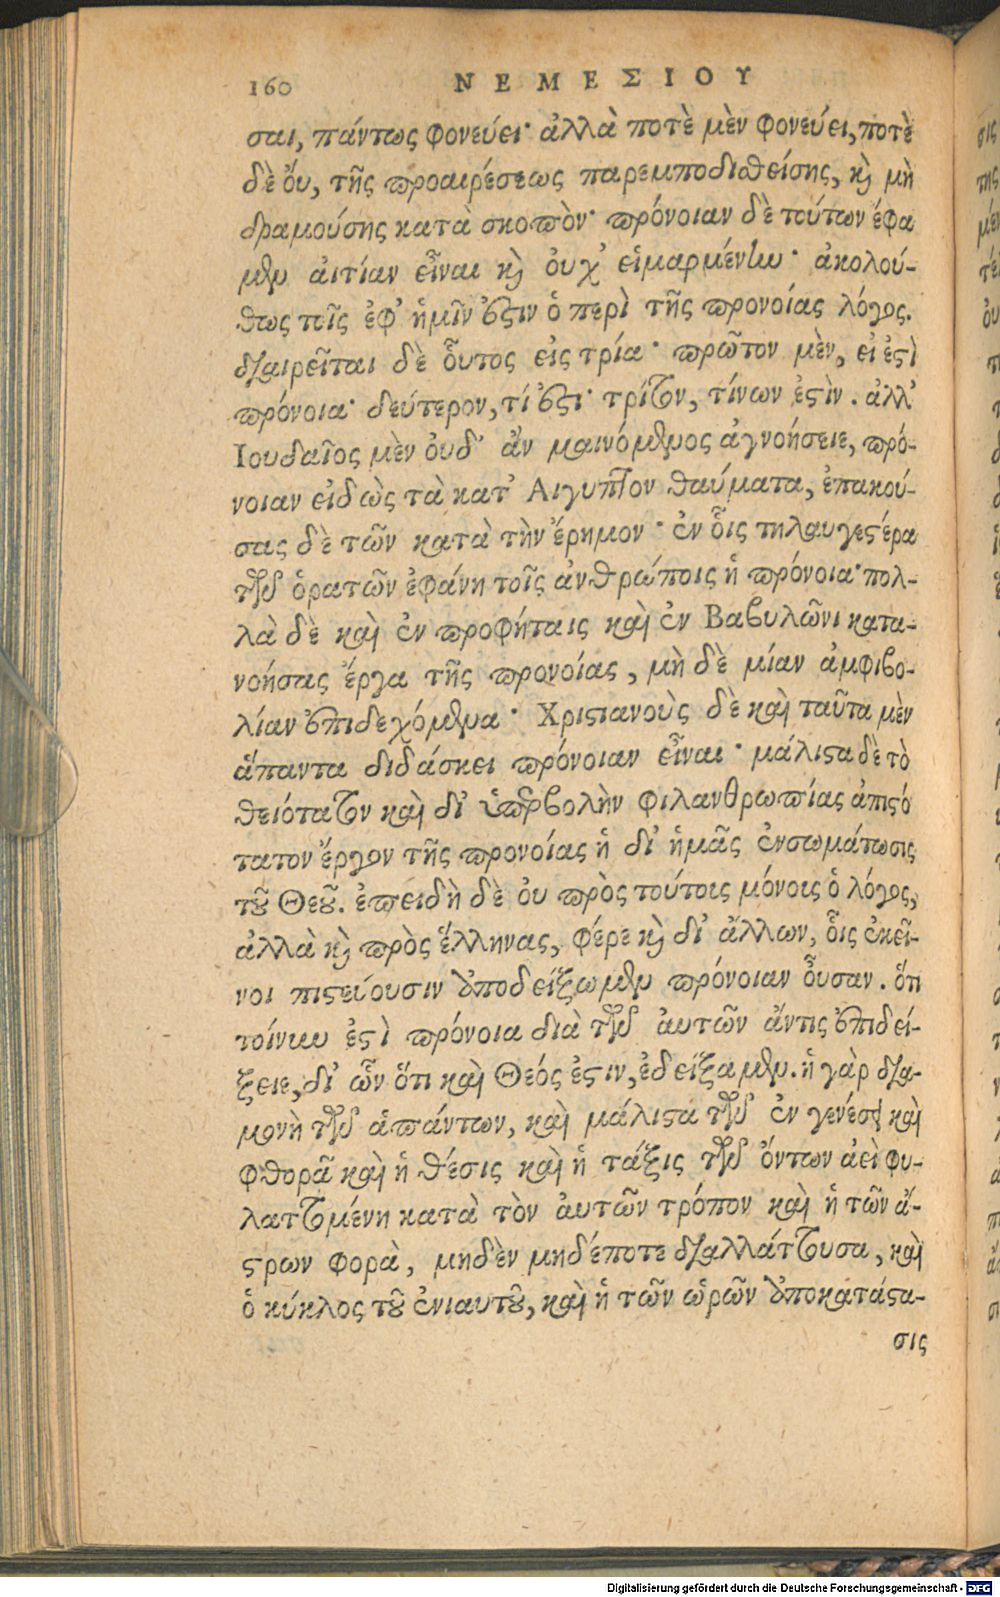 160 ΝΕΜΕΣΙΟΥ
σαι, πάντως φονεύει· ἀλλὰ ποτὲ μὲν φονεύει, ποτὲ
δὲ ὄυ, τῆς προαιρέσεως παρεμποδισθείσης, κỳ μὴ
δραμούσης κατὰ σκοπὸν· πρόνοιαν δὲ τούτων ἔφα
μεν ἀιτίαν εἶναι καὶ ὀυχ' εἱμαρμένην· ἀκολού-
θως τοῖς ἐφ' ἡμῖν ἐστιν ὁ περὶ τῆς προνοίας λόγος.
διαιρεῖται δὲ ὅυτος εἰς τρία· πρῶτον μὲν, εἰ ἐστὶ
πρόνοια· δεύτερον, τί ἐστι· τρίτον, τίνων ἐστὶν. ἀλλ'
Ιουδαῖος μὲν ὀυδ' ἄν μαινόμενος ἀγνοήσειε, πρό-
νοιαν εἰδὼς τὰ κατ' Αιγυπτον θαύματα, ἐπακού-
σας δὲ τῶν κατὰ τὴν ἔρημον· ἐν οἷς τηλαυγεστέρα
τῶν ὁρατῶν ἐφάνη τοῖς ἀνθρώποις ἡ πρόνοια· πολ-
λὰ δὲ καὶ ἐν προφήταις καὶ ἐν Βαβυλῶνι κατα-
νοήσας ἔργα τῆς προνοίας, μὴ δὲ μίαν ἀμφιβο-
λίαν ἐπιδεχόμενα· Χριστιανοὺς δὲ καὶ ταῦτα μὲν
ἅπαντα διδάσκει πρόνοιαν εἶναι· μάλιστα δὲ τὸ
θειότατον καὶ δι' ὑπερβολὴν φιλανθρωπίας ἀπιστό
τατον ἔργον τῆς προνοίας ἡ δι' ἡμᾶς ἐνσωμάτωσις
τοῦ Θεοῦ. ἐπειδὴ δὲ ὀυ πρὸς τούτοις μόνοις ὁ λόγος,
ἀλλὰ καὶ πρὸς ἕλληνας, φέρε καὶ δι' ἄλλων, οἷς ἐκεῖ-
νοι πιστεύουσιν ἀποδείξωμεν πρόνοιαν ὖσαν. ὅτι
τοίνυν ἐστὶ πρόνοια διὰ τῶν ἀυτῶν ἄντις ἐπιδεί-
ξειε, δι' ὧν ὅτι καὶ Θεός ἐστιν, ἐδείξαμεν. ἡ γὰρ δια-
μονὴ τῶν ἁπάντων, καὶ μάλιστα τῶν ἐν γενέσει καὶ
φθορᾷ καὶ ἡ θέσις καὶ ἡ τάξις τῶν ὄντων ἀεὶ φυ-
λαττομένη κατὰ τὸν ἀυτῶν τρόπον καὶ ἡ τῶν ἄ-
στρων φορὰ, μηδὲν μηδέποτε διαλλάττουσα, καὶ
ὁ κύκλος τοῦ ἐνιαυτοῦ, καὶ ἡ τῶν ὡρῶν ἀποκατάστα-
σις
Digitalisierung gefördert durch die Deutsche Forschungsgemeinschaft - DFG